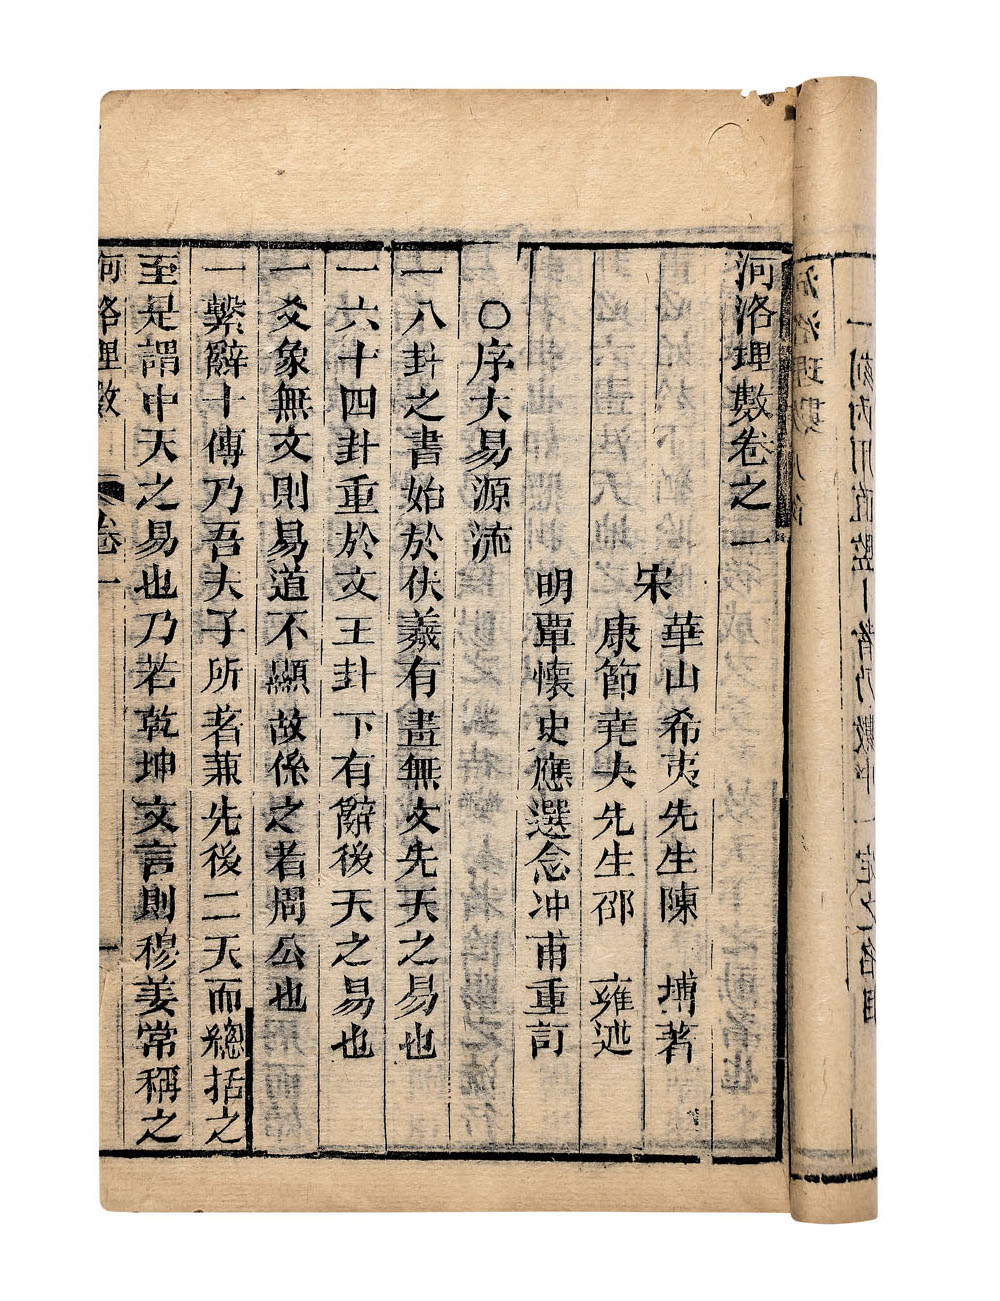 河洛理數卷之一
宋
華山希夷先生陳 摶著
康節堯夫先生邵 雍述
明覃懷史應選念冲甫重訂
○序大易源流
一八卦之書始於伏羲有畫無文先天之易也
一六十四卦重於文王卦下有辭後天之易也
一爻象無文則易道不顯故係之者周公也
一繫辭十傳乃吾夫子所著兼先後二天而總括之
至是謂中天之易也乃若乾坤文言則穆姜常稱之
河洛理數
卷一